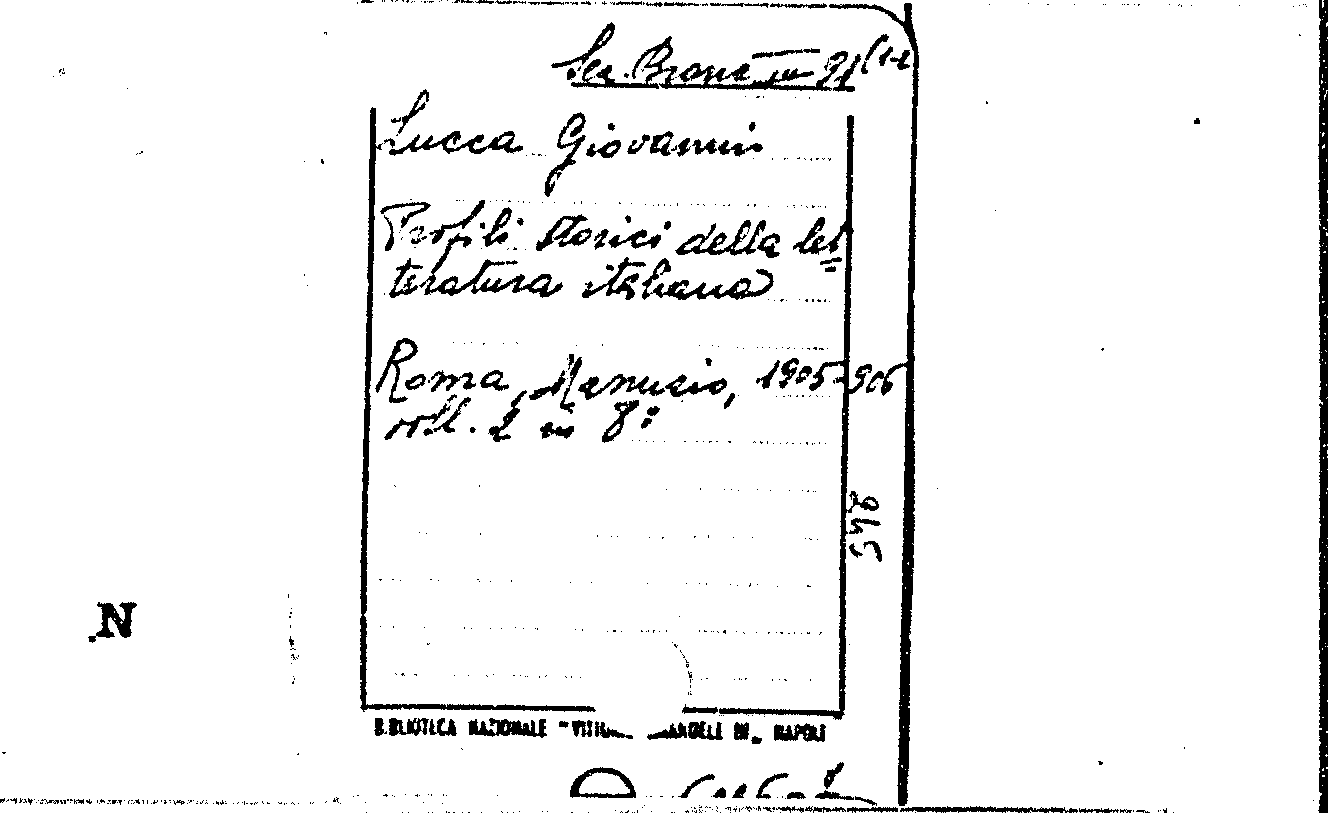 Sez. Branc. III 91 (1-2
Lucca Giovanni
Profili storici della let=
teratura italiana
Roma, Manuzio, 1905-906
voll. 2 in 8°
546
N
BIBLIOTECA NAZIONALE "VITT ANUELE III" NAPOLI